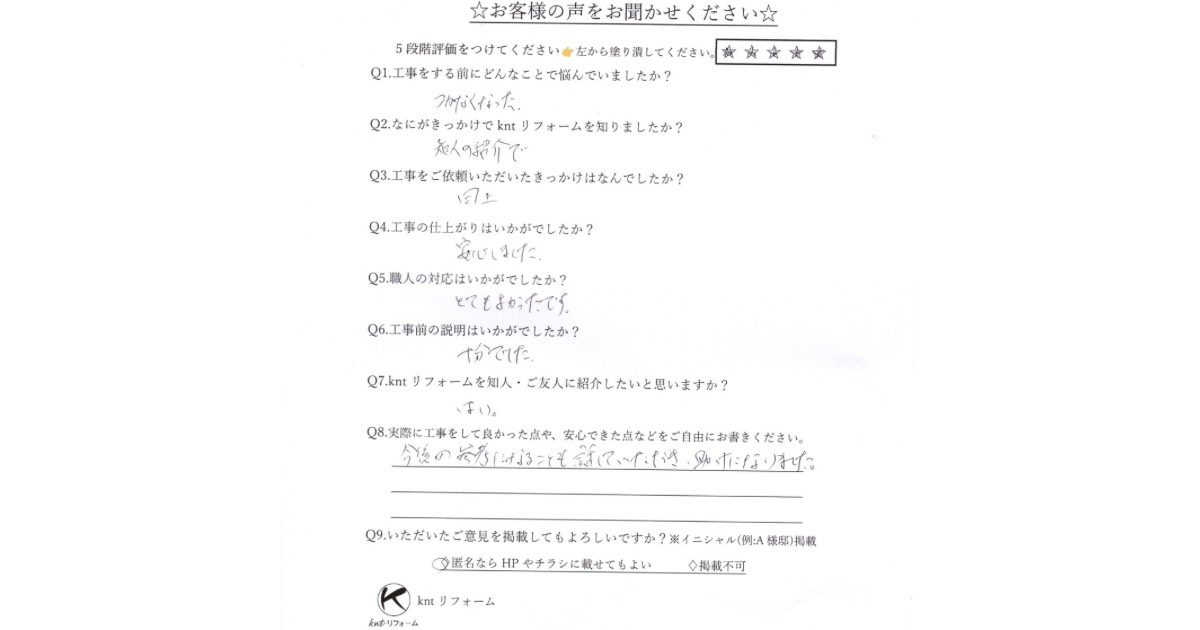 ☆お客様の声をお聞かせください☆
5段階評価をつけてください👉左から塗り潰してください。☆☆☆☆☆
Q1.工事をする前にどんなことで悩んでいましたか？
つかなくなった.
Q2.なにがきっかけで knt リフォームを知りましたか？
知人の紹介で
Q3.工事をご依頼いただいたきっかけはなんでしたか？
同上
Q4.工事の仕上がりはいかがでしたか？
安心しました.
Q5.職人の対応はいかがでしたか？
とてもよかったです。
Q6.工事前の説明はいかがでしたか？
十分でした.
Q7.knt リフォームを知人・ご友人に紹介したいと思いますか？
はい。
Q8.実際に工事をして良かった点や、安心できた点などをご自由にお書きください。
今後の参考になることも話していただき、助けになりました。
Q9.いただいたご意見を掲載してもよろしいですか？※イニシャル(例:A 様邸)掲載
◇匿名なら HP やチラシに載せてもよい ◇掲載不可
knt リフォーム
knt リフォーム